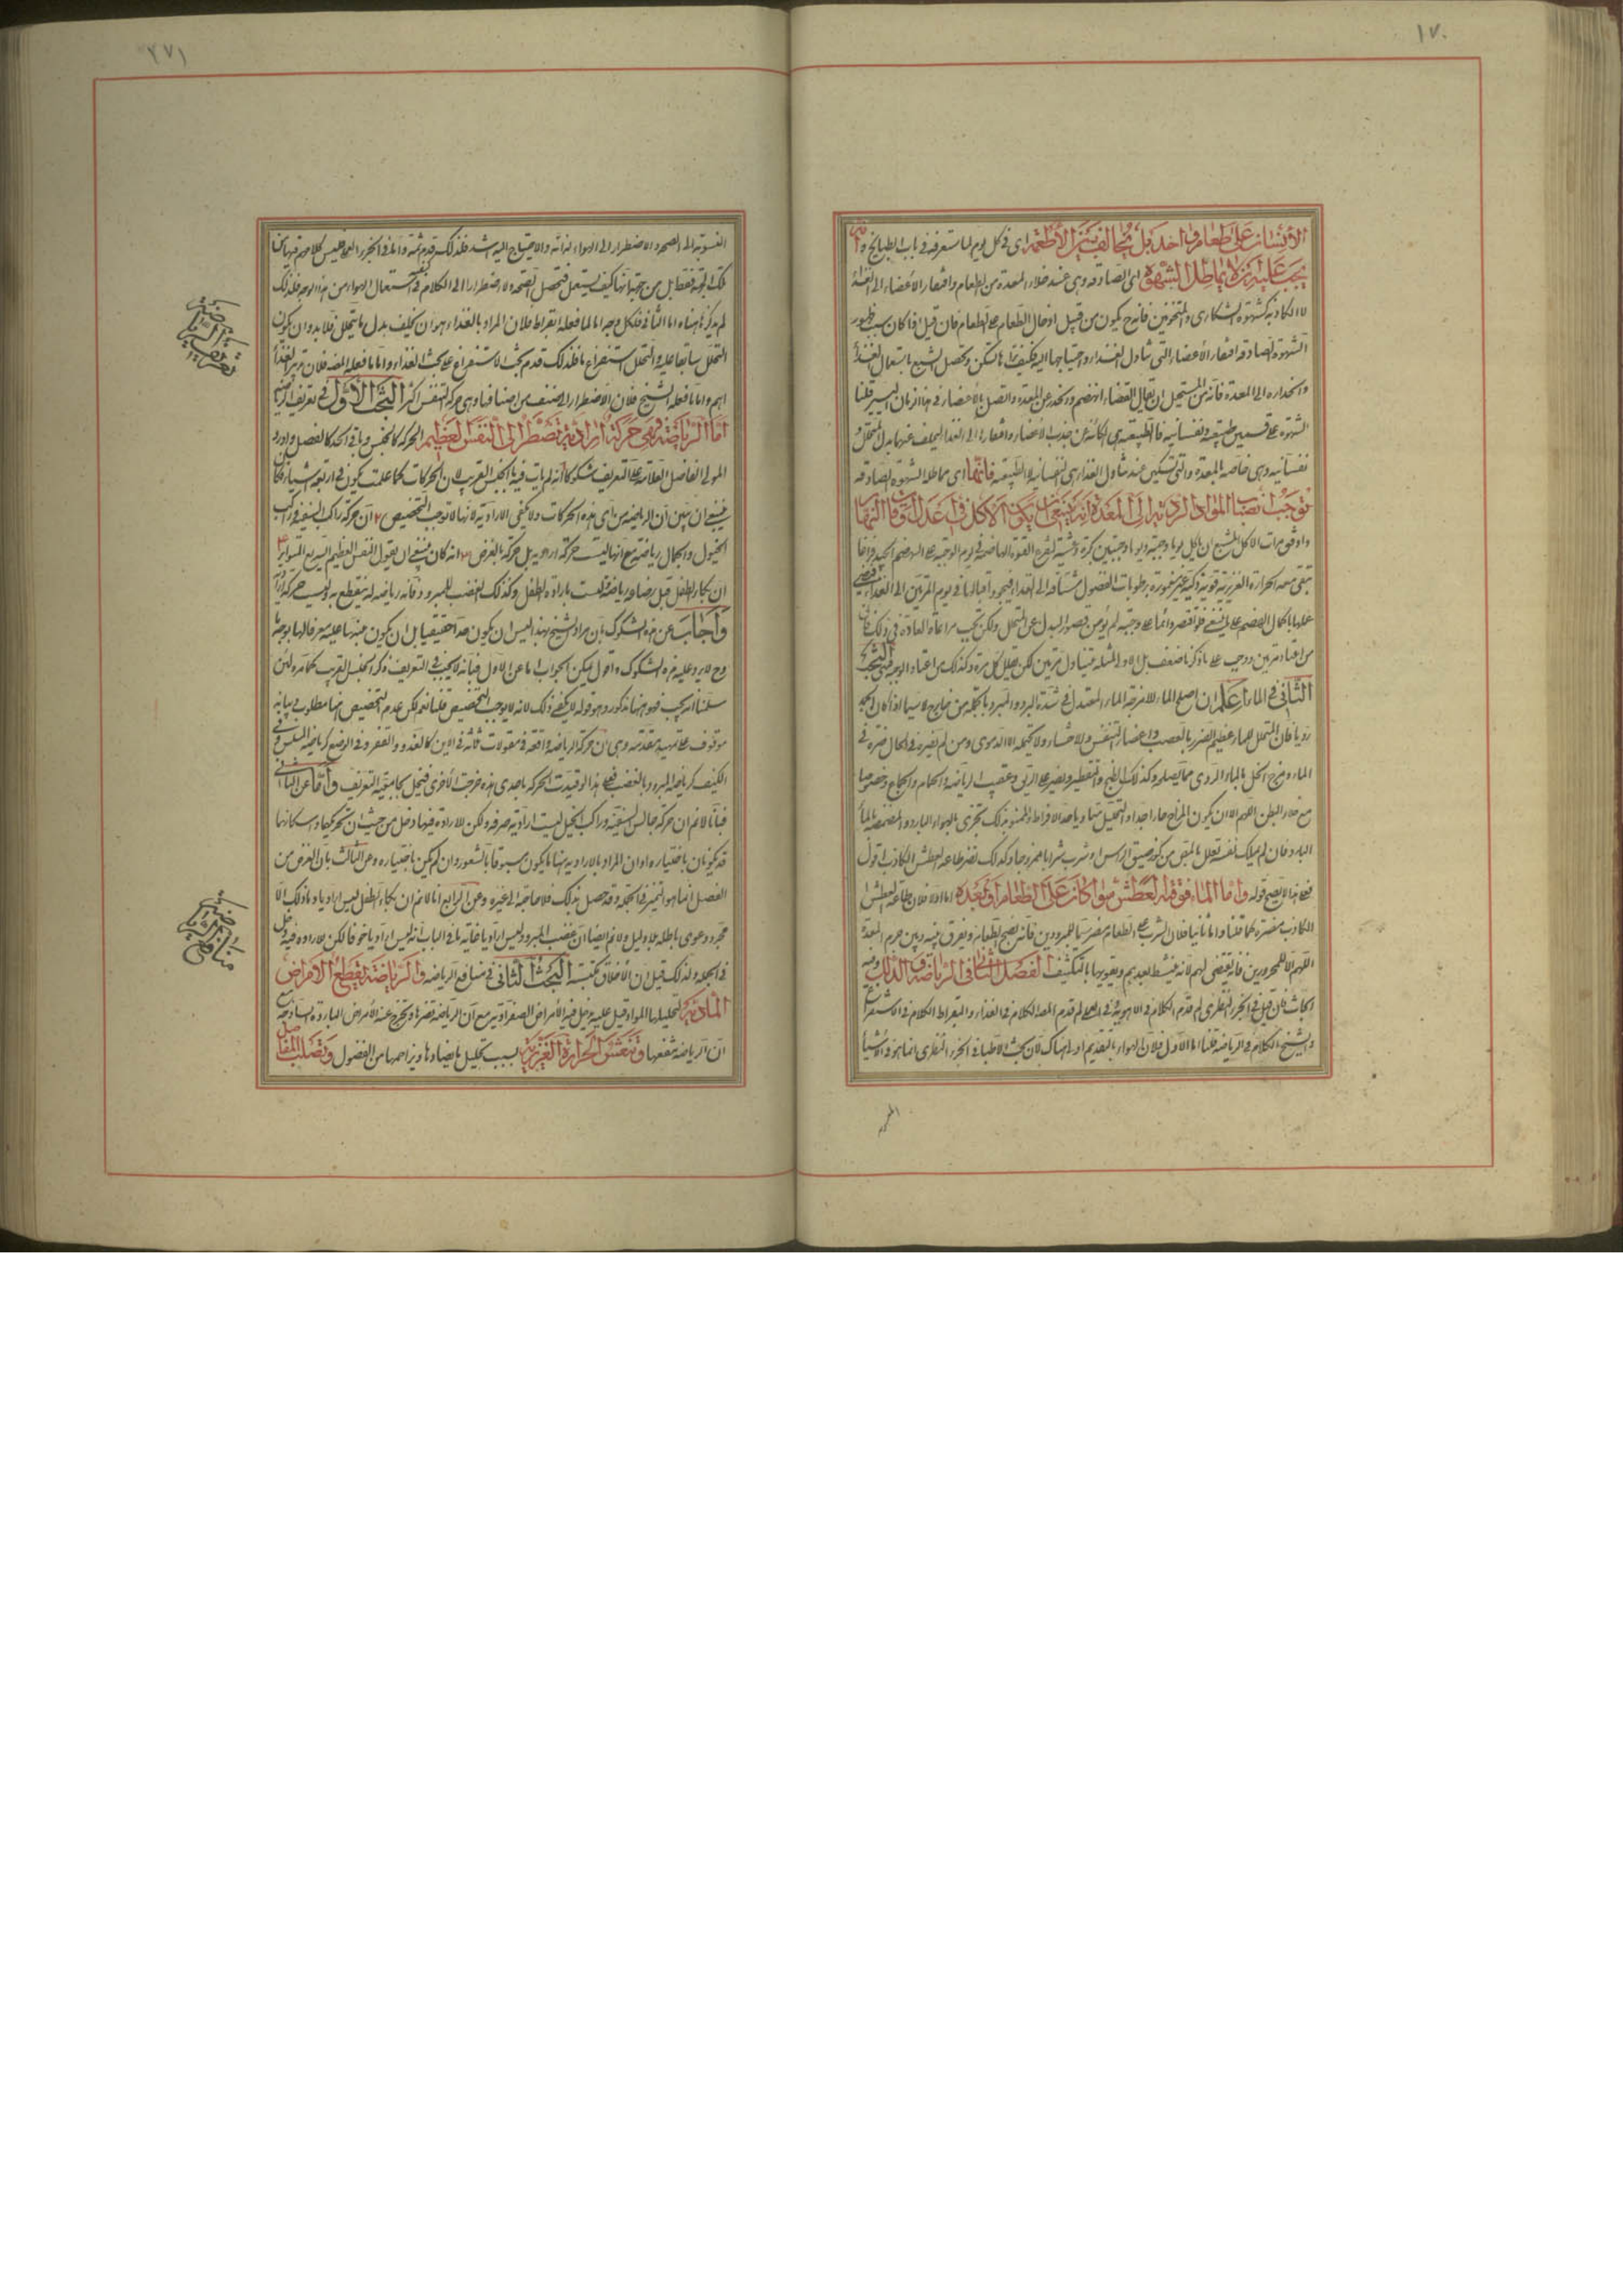 ١٧٠
الانسان على طعام واحد بل يخالف بين الاطعمة اى فى كل يوم لما ستعرفه فى باب الطبايخ و
يجب عليه ان لا يماطل الشهوة اى الصادقه وهى عند خلاء المعدة من الطعام وافتقار الاعضاء الى الغذاء
لا الكاذبة كشهوة السكارى والمتخومين فانه ح يكون من قبيل ادخال الطعام على الطعام فان قيل اذا كان سبب ظهور
الشهوة الصادقة افتقار الاعضاء الى تناول الغذاء واحتياجها اليه فكيف تسكن ويحصل الشبع باستعمال الغذاء
وانحداره الى المعدة فانه من المستحيل ان يقال الغذاء انهضم وانحدر عن المعدة واتصل بالاعضاء فى هذا الزمان اليسير قلنا
الشهوة على قسمين طبيعية ونفسانية فالطبيعية هى الكائنة عن جذب الاعضاء وافتقارها الى الغذاء ليخلف عنها بدل المتحلل و
نفسانية وهى خاصة المعدة والتى تسكن عند تناول الغذاء هى النفسانية لا الطبيعية فانها اى مماطلة الشهوة الصادقه
توجب انصباب المواد الردية الى المعدة وانه ينبغى ان يكون الاكل فى اعدل اوقات النهار
واوفق مرات الاكل للشبع ان ياكل يوما وجبة ويوما وجبتين بكرة وعشية
تبقى معه الحرارة الغريزية قوية ذكية غير مغمورة برطوبات الفضول مشتاقة الى الغذاء
عليها باكمال الهضم على ما ينبغى فلو اقتصر دائما على وجبة لم يؤمن قصور البدل عن المتحلل ولكن يجب مراعاة العادة فى ذلك فان
من اعتاد مرتين ووجب على ما ذكرنا ضعف بل الاولى لمثله ان يتناول مرتين لكن يقلل كل مرة وكذلك من اعتاد الوجبة البحث
الثانى فى الماء اعلم ان اصلح الماء للامزجة الماء المعتدل فى شدة البرد والمبرد بالجمد من خارج لا سيما اذا كان الجمد
رديا فان المتحلل للماء عظيم الضرر بالعصب واعضاء التنفس والاحشاء ولا يحتمله الا الدموى ومن لم يضره فى الحال ضره فى
المآل ومزج الخل بالماء الردى مما يصلحه وكذلك الطبخ والتقطير ويضر على الريق وعقيب الرياضة والحمام والجماع وخصوصا
مع خلاء البطن اللهم الا ان يكون المزاج حارا جدا والتحليل متناهيا حد الافراط والممنوع بذلك يجتزى بالهواء البارد والمضمضة بالماء
البارد فان لم يملك نفسه تعلل بالمص من كوز ضيق الراس او شرب شرابا ممزوجا وكذلك تضر طاعة العطش الكاذب اقول
فعلى هذا لا يصح قوله واما الماء فوقته العطش سواء كان على الطعام او بعده اما اولا فلان طاعة العطش
الكاذب مضرة كما قلنا واما ثانيا فلان الشرب على الطعام مضر سيما للمبرودين فانه يفجج الطعام ويفرق بينه وبين جرم المعدة
اللهم الا للمحرورين فانه يقتضى لهم لانه ينشط معدهم ويقويها بالتكثيف الفصل الثانى فى الرياضة والدلك وفيه
ابحاث فان قيل فى الجزء النظرى لم قدم الكلام فى الاهوية وفى العملى لم قدم المصه الكلام فى الغذاء والبقراط الكلام فى الاستفراغ
والشيخ الكلام فى الرياضة قلنا اما الاول فلان الهواء بالتقديم اولى هناك لان بحث الاطباء فى الجزء النظرى انما هو فى الاشياء
٢٧١
المنسوبة الى الصحة والاضطرار الى الهواء لذاته والاحتياج اليه اشد فلذلك قدم ثمة واما فى الجزء العملى فليس كلامهم فيها من
تلك الجهة فقط بل من جهة انها كيف يستعمل فتحصل الصحة ولا اضطرار الى الكلام فى استعمال الهواء من هذا الوجه فلذلك
لم يذكر هاهنا واما الثانى فلكل وجه اما لما فعله ابقراط فلان المراد بالغذاء هو ان يخلف بدل ما يتحلل فلا بد وان يكون
التحلل سابقا عليه والتحلل استفراغ ما فلذلك قدم بحث الاستفراغ على بحث الغذاء واما ما فعله المصه فلان تدبير الغذاء
اهم واما ما فعله الشيخ فلان الاضطرار الى صنف من اصنافها وهى حركة التنفس اكثر البحث الاول فى تعريف الرياضة
اما الرياضة فهى حركة ارادية تضطر الى التنفس العظيم الحركة كالجنس وباقى الحد كالفصل واورد
المولى الفاضل العلامة على التعريف شكوكا ا انه لم يات فيه بالجنس القريب لان الحركات كما علمت يكون فى اربعة اشياء فكان
ينبغى ان يبين ان الرياضة من اى هذه الحركات ولا يكفى الارادية لانها لا توجب التخصيص ٢ ان حركة راكب السفينة وراكب
الخيول والجمال رياضة مع انها ليست حركة ارادية بل حركة بالعرض ٣ انه كان ينبغى ان يقول النفس العظيم السريع المتواتر ٤
ان بكاء الطفل قبل رضاعه رياضة وليست بارادة الطفل وكذلك الغضب للمبرود فانه رياضة له ينقطع به وليست حركة ارادية
واجاب عن هذه الشكوك بان مراد الشيخ بهذا ليس ان يكون هذا حدا حقيقيا بل ان يكون منبها عليه معرفا لها بوجه ما
وح لا يرد عليه هذه الشكوك واقول يمكن الجواب اما عن الاول فبانه لا يجب فى التعريف ذكر الجنس القريب كما مر ولئن
سلمنا انه يجب فهو هاهنا مذكور وهو قوله لا يكفى ذلك لانه لا يوجب التخصيص قلنا نعم لكن عدم التخصيص هاهنا مطلوب وبيانه
موقوف على تمهيد مقدمة وهى ان حركة الرياضة واقعة فى مقولات ثلثة فى الاين كالعدو والقفز وفى الوضع كرياضة
الكيف كرياضة المبرود بالغضب فعلى هذا لو قيدت الحركة باحدى هذه خرجت الاخرى فيختل جامعية التعريف واما عن الثانى
فبانا لا نم ان حركة جالس السفينة وراكب الخيل ليست ارادية صرفة ولكن للارادة فيها دخل من حيث ان تحركهما واسكانهما
قد يكونان باختياره او ان المراد بالارادية هاهنا ما يكون مسبوقا بالشعور وان لم يكن باختياره وعن الثالث بان الغرض من
الفصل انما هو التميز فى الحد وقد حصل بذلك فلا حاجة الى غيره وعن الرابع انا لا نم ان بكاء الطفل ليس اراديا وما ذلك الا
مجرد دعوى باطلة بلا دليل ولا نم ايضا ان غضب المبرود ليس اراديا غاية ما فى الباب انه ليس اراديا صرفا لكن للارادة فيه دخل
فى الجملة ولذلك قيل ان الاخلاق مكتسبة البحث الثانى فى منافع الرياضه والرياضة يقطع الامراض
المادية لتحليلها المواد قيل عليه دخل فيه الامراض الصفراوية مع ان الرياضة تضرها ويخرج عنه الامراض الباردة الساذجة مع
ان الرياضة تنفعها وتنعش الحرارة الغريزية بسبب تحليل ما يضادها ويزاحمها من الفضول وتصلب المفاصل
تعريف الرياضة
منافع الرياضة